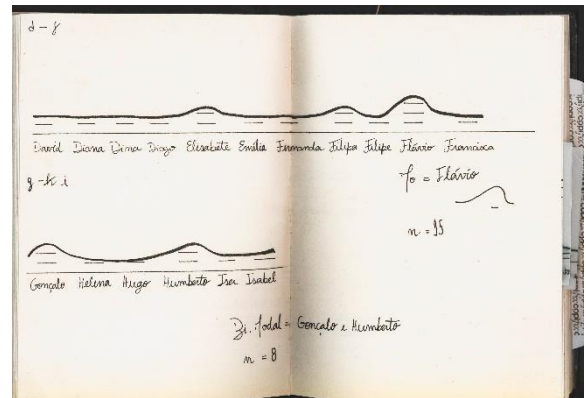 d - f
David Diana Dima Diogo Elisabete Emília Fernanda Filipa Filipe Flávio Francisca
fo = Flávio
n = 11
g - i
Gonçalo Helena Hugo Humberto Isa Isabel
Bi. fodal = Gonçalo e Humberto
n = 8